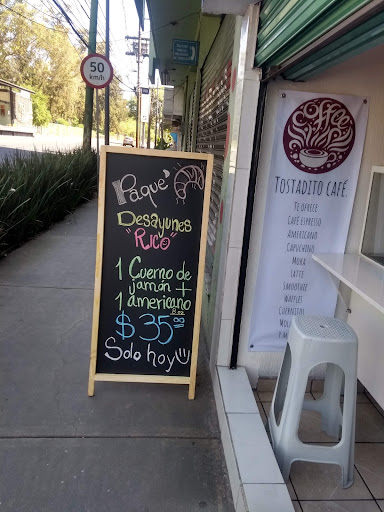 50
km/h
Paque'
Desayunes
"RICO"
1 Cuerno de
jamón +
1 americano
8 oz
$ 35.00
Solo hoy
COFFEE
TOSTADITO CAFÉ.
TE OFRECE
CAFÉ ESPRESSO
AMERICANO
CAPUCHINO
MOKA
LATTE
SMOOTHIE
WAFFLES
CUERNITOS